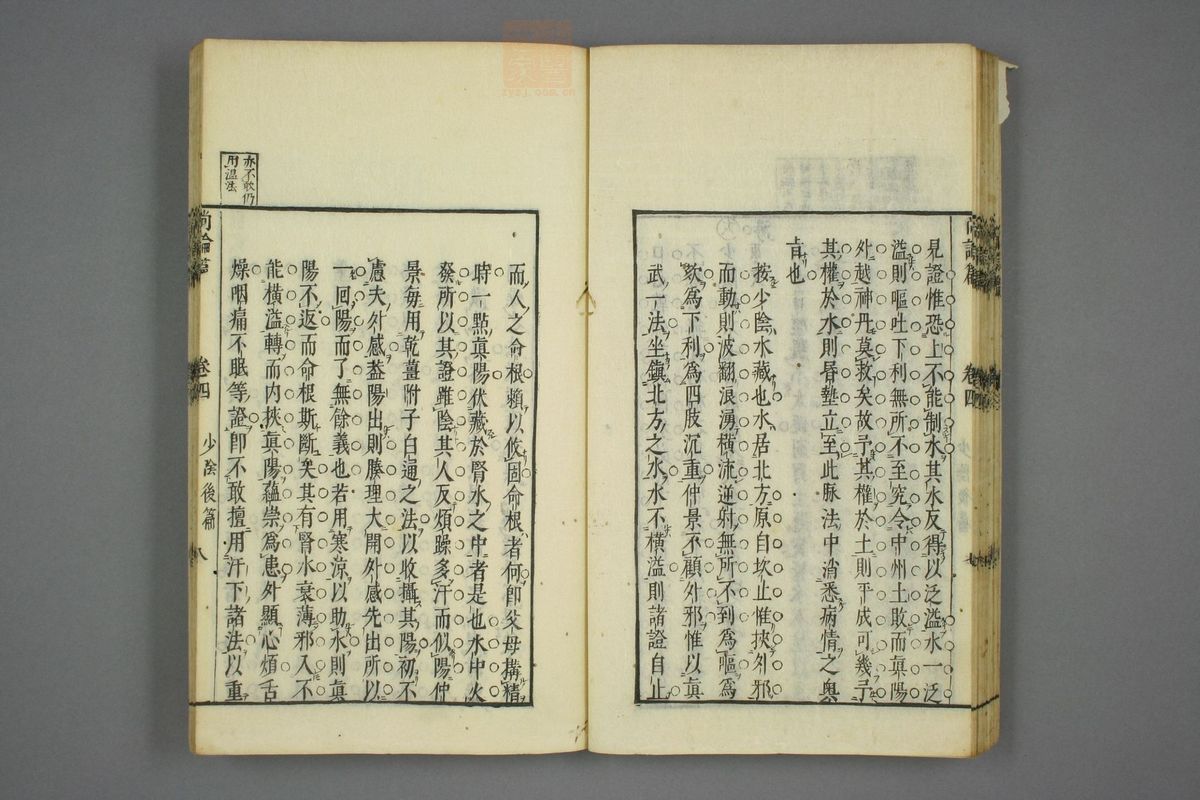 見證惟恐上不能制水其水反得以泛溢水一泛
溢則嘔吐下利無所不至究令中州土敗而真陽
外越神丹莫救矣故予其權於土則平成可幾予
其權於水則昬墊立至此脉法中消悉病情之奥
旨也
按少陰水藏也水居北方原自坎止惟挾外邪
而動則波翻浪湧橫流逆射無所不到爲嘔爲
欬爲下利爲四肢沉重仲景不顧外邪惟以真
武一法坐鎮北方之水水不橫溢則諸證自止
尚論篇 卷四 少陰後篇 七
而人之命根賴以攸固命根者何卽父母搆精
時一點真陽伏藏於腎水之中者是也水中火
發所以其證雖陰其人反煩躁多汗而似陽仲
景每用乾薑附子白通之法以收攝其陽初不
慮夫外感葢陽出則腠理大開外感先出所以
一囘陽而了無餘義也若用寒涼以助水則真
陽不返而命根斯斷矣其有腎水衰薄邪入不
能橫溢轉而内挾真陽蘊崇爲患外顯心煩舌
燥咽痛不眠等證卽不敢擅用汗下諸法以重
亦不敢仍
用溫法
尚論篇 卷四 少陰後篇 八